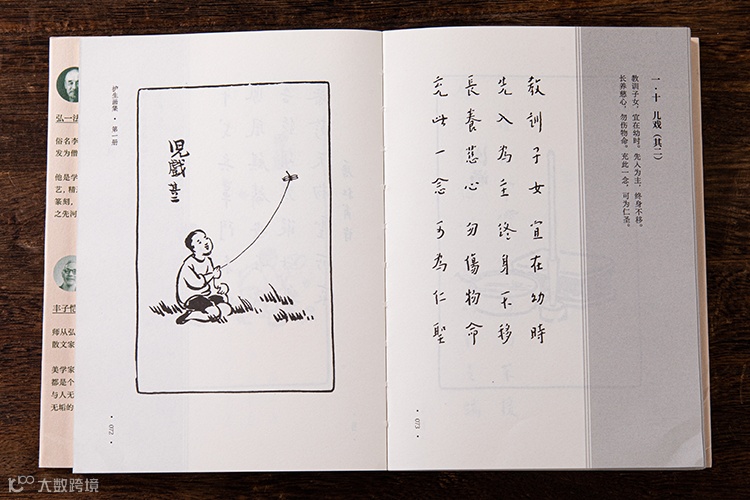 弘一法
俗名李
发为僧
他是学
艺，精
篆刻，
之先河
丰子恺
师从弘
散文家
美学家
都是个
与人无
无垢的
护生画集·第一册
兒戲
其二
·072·
一·十 儿戏（其二）
教训子女，宜在幼时。先入为主，终身不移。
长养慈心，勿伤物命。充此一念，可为仁圣。
教訓子女宜在幼時
先入為主終身不移
長養慈心勿傷物命
充此一念可為仁聖
·073·
大数跨境